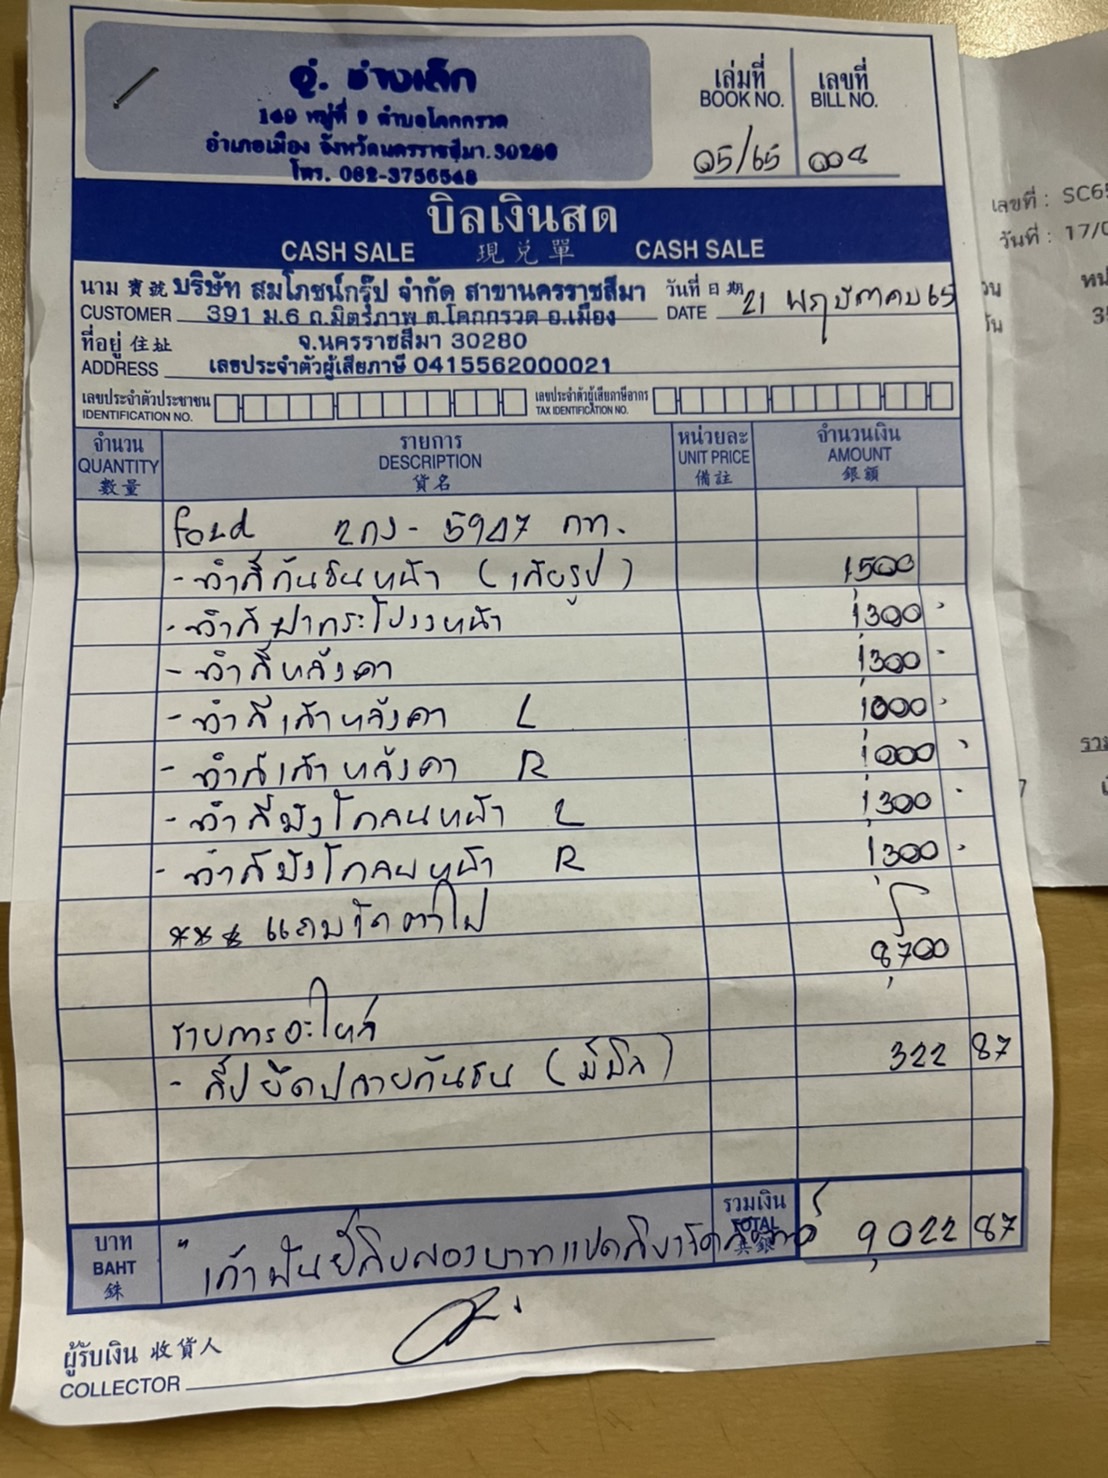 อู่. ช่างเล็ก
149 หมู่ที่ 9 ตำบลโคกกรวด
อำเภอเมือง จังหวัดนครราชสีมา.30280
โทร. 082-3756548
เล่มที่ เลขที่
BOOK NO. BILL NO.
05/65 008
บิลเงินสด
CASH SALE 現兌單 CASH SALE
นาม 寶號 บริษัท สมโภชน์กรุ๊ป จำกัด สาขานครราชสีมา วันที่ 日期 21 พฤษภาคม 65
CUSTOMER 391 ม.6 ถ.มิตรภาพ ต.โคกกรวด อ.เมือง DATE
ที่อยู่ 住址 จ.นครราชสีมา 30280
ADDRESS เลขประจำตัวผู้เสียภาษี 0415562000021
เลขประจำตัวประชาชน เลขประจำตัวผู้เสียภาษีอากร
IDENTIFICATION NO. TAX IDENTIFICATION NO.
จำนวน รายการ หน่วยละ จำนวนเงิน
QUANTITY DESCRIPTION UNIT PRICE AMOUNT
數量 貨名 備註 銀額
Ford 2กง-5947 กท.
- ทำสีกันชนหน้า (เสียรูป) 1,500
- ทำสีฝากระโปรงหน้า 1,300 -
- ทำสีหลังคา 1,300 -
- ทำสีเสาหลังคา L 1,000 -
- ทำสีเสาหลังคา R 1,000 -
- ทำสีบังโคลนหน้า L 1,300 -
- ทำสีบังโคลนหน้า R 1,300 -
*** แถมขัดตาไฟ
8,700
รายการอะไหล่
- กิ๊ปยึดปลายกันชน (มีบิล) 322 87
บาท รวมเงิน
BAHT TOTAL
銖 共銀
" เก้าพันยี่สิบสองบาทแปดสิบเจ็ดสตางค์ 9,022 87
ผู้รับเงิน 收貨人
COLLECTOR
เลขที่ : SC65
วันที่ : 17/0
35
รวม